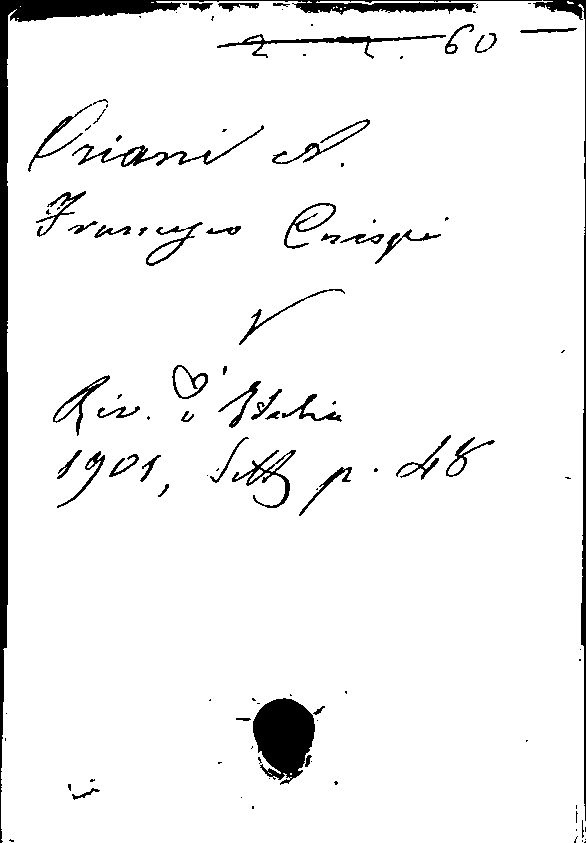 60
Oriani A.
Francesco Crispi
V
Riv. d'Italia
1901, Sett p. 48